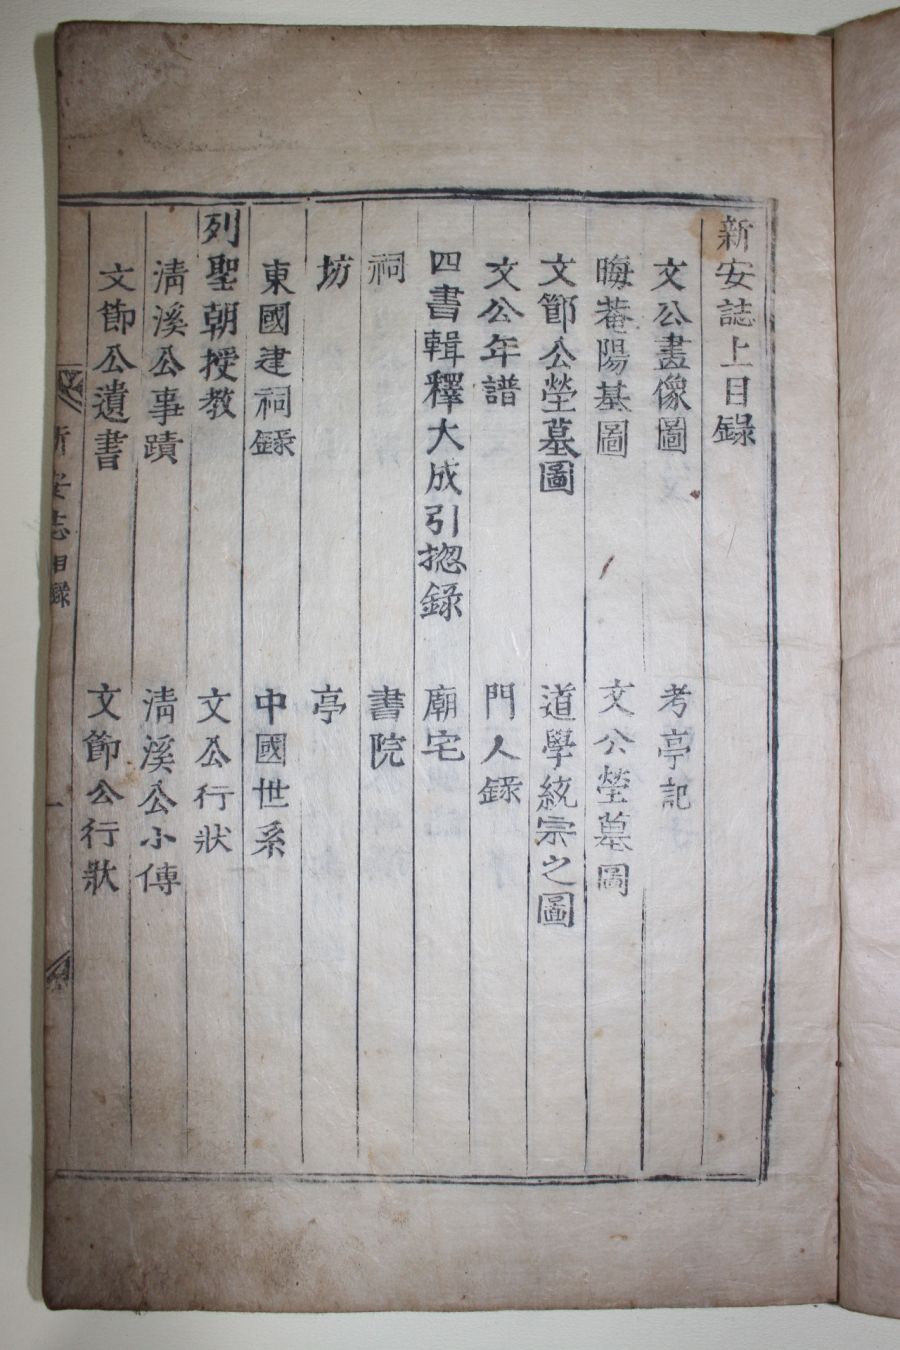 新安誌上目錄
文公畫像圖 考亭記
晦菴陽基圖 文公塋墓圖
文節公塋墓圖 道學統宗之圖
文公年譜 門人錄
四書輯釋大成引揔錄 廟宅
祠 書院
坊 亭
東國建祠錄 中國世系
列聖朝授教 文公行狀
清溪公事蹟 清溪公小傳
文節公遺書 文節公行狀
新安志 目錄 一